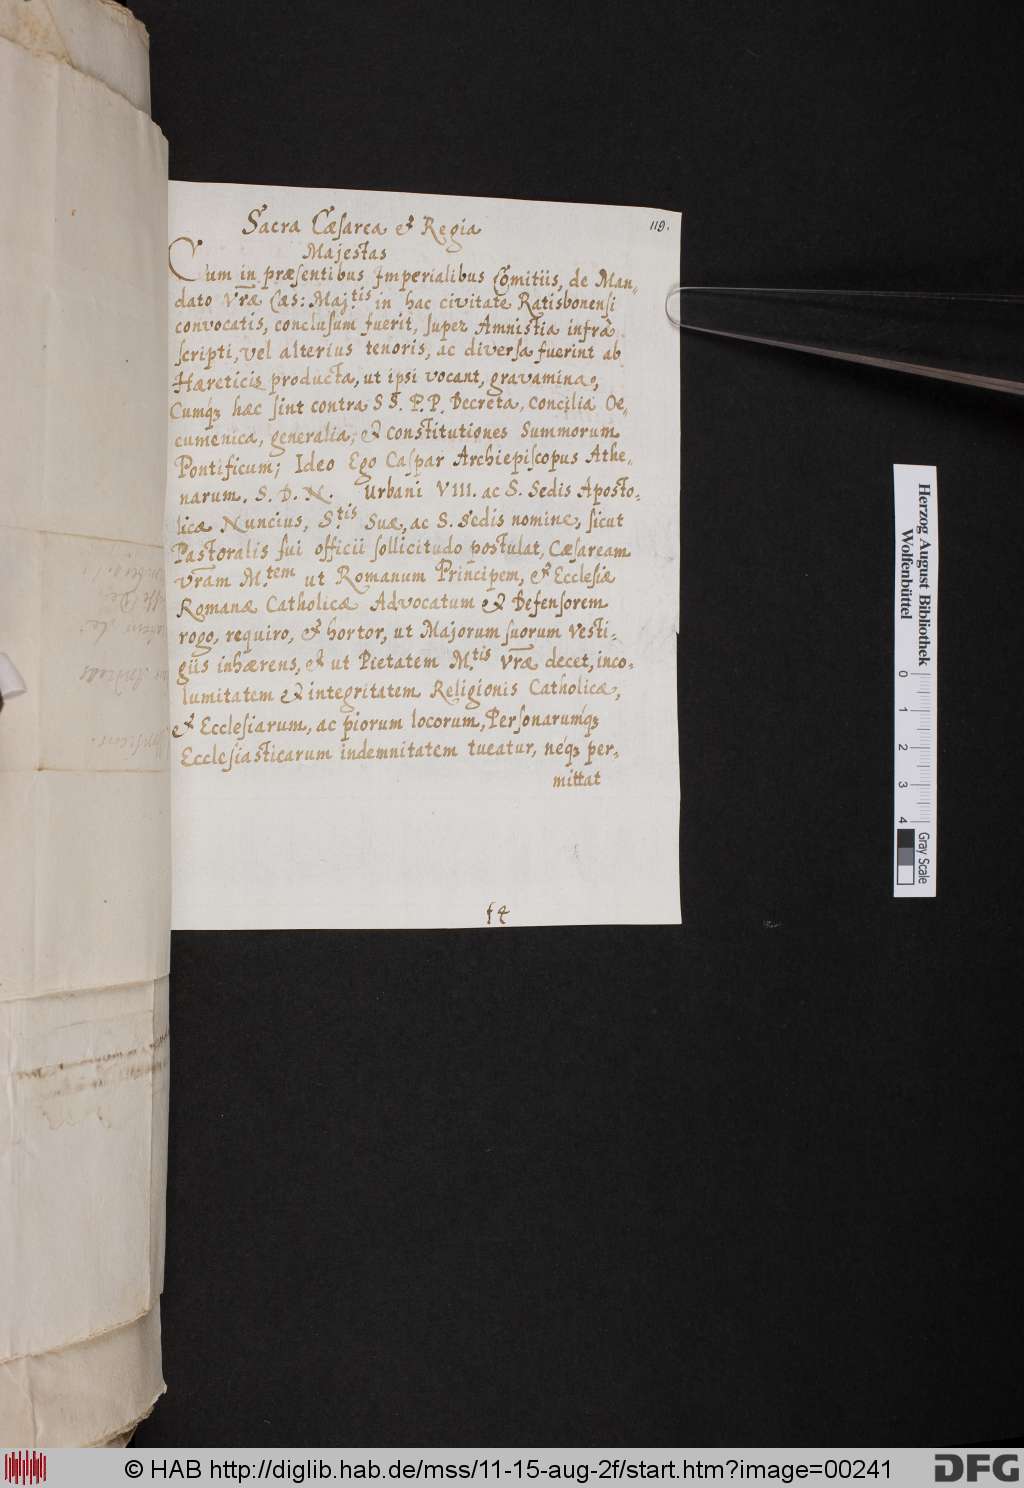 119.
Sacra Cæsarea et Regia
Majestas
Cum in præsentibus Imperialibus Comitiis, de Man-
dato Vræ Cæs: Maj.tis in hac civitate Ratisbonensi
convocatis, conclusum fuerit, super Amnistia infra
scripti, vel alterius tenoris, ac diversa fuerint ab
Hæreticis producta, ut ipsi vocant, gravamina,
Cumq3 hæc sint contra S S. P. P. Decreta, Concilia Oe-
cumenica, generalia, et constitutiones Summorum
Pontificum; Ideo Ego Caspar Archiepiscopus Athe-
narum, S. D. N. Urbani VIII. ac S. Sedis Aposto-
licæ Nuncius, S.tis Suæ, ac S. Sedis nomine, sicut
Pastoralis sui officii sollicitudo postulat, Cæsaream
Vram M.tem ut Romanum Principem, et Ecclesiæ
Romanæ Catholicæ Advocatum et Defensorem
rogo, requiro, et hortor, ut Majorum suorum vesti-
giis inhærens, et ut Pietatem M.tis Vræ decet, inco-
lumitatem et integritatem Religionis Catholicæ,
et Ecclesiarum, ac piorum locorum, Personarumq3
Ecclesiasticarum indemnitatem tueatur, neq3 per-
mittat
f4
Herzog August Bibliothek
Wolfenbüttel
0 1 2 3 4
Gray Scale
© HAB http://diglib.hab.de/mss/11-15-aug-2f/start.htm?image=00241
DFG